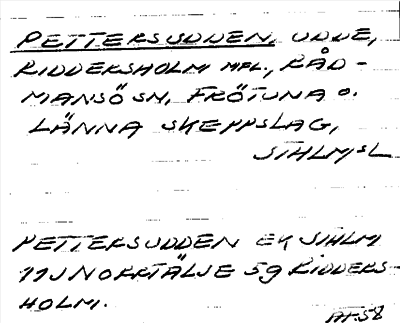 PETTERSUDDEN, UDDE,
RIDDERSHOLM MFL., RÅD-
MANSÖ SN, FRÖTUNA O.
LÄNNA SKEPPSLAG,
STHLMS L
PETTERSUDDEN EK STHLM
11J NORRTÄLJE 5g RIDDERS-
HOLM.
AF.58